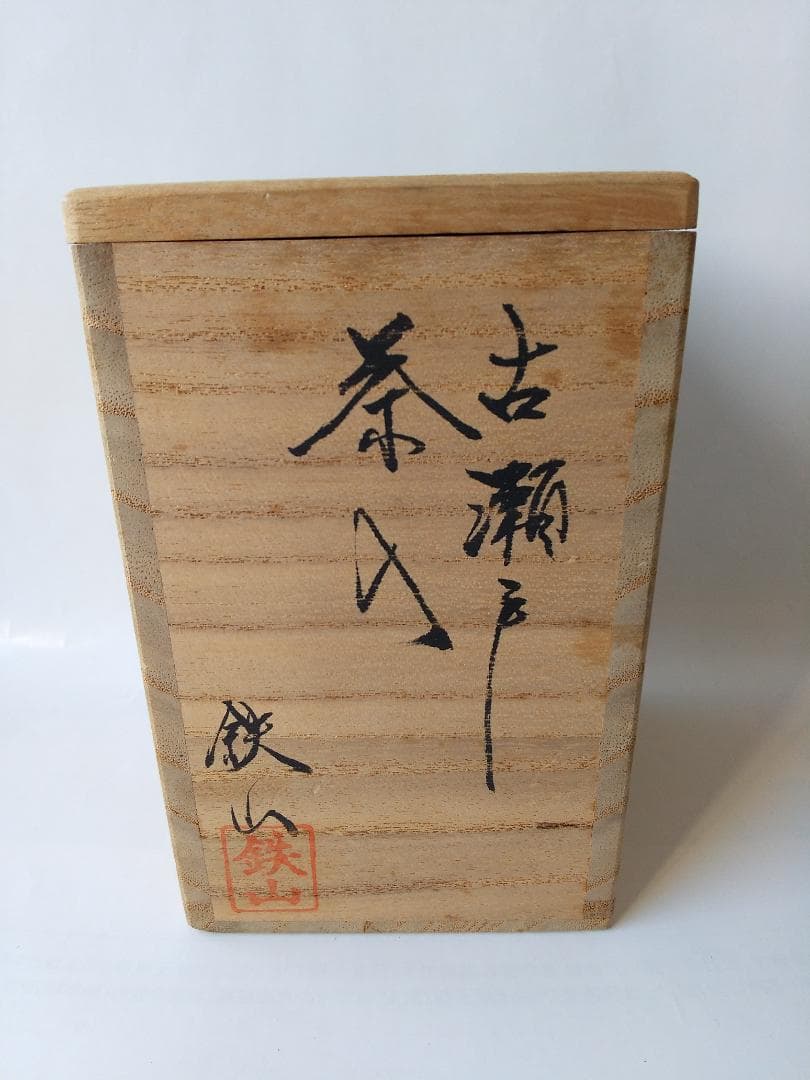 古瀬戸
茶入
鉄山
鉄山